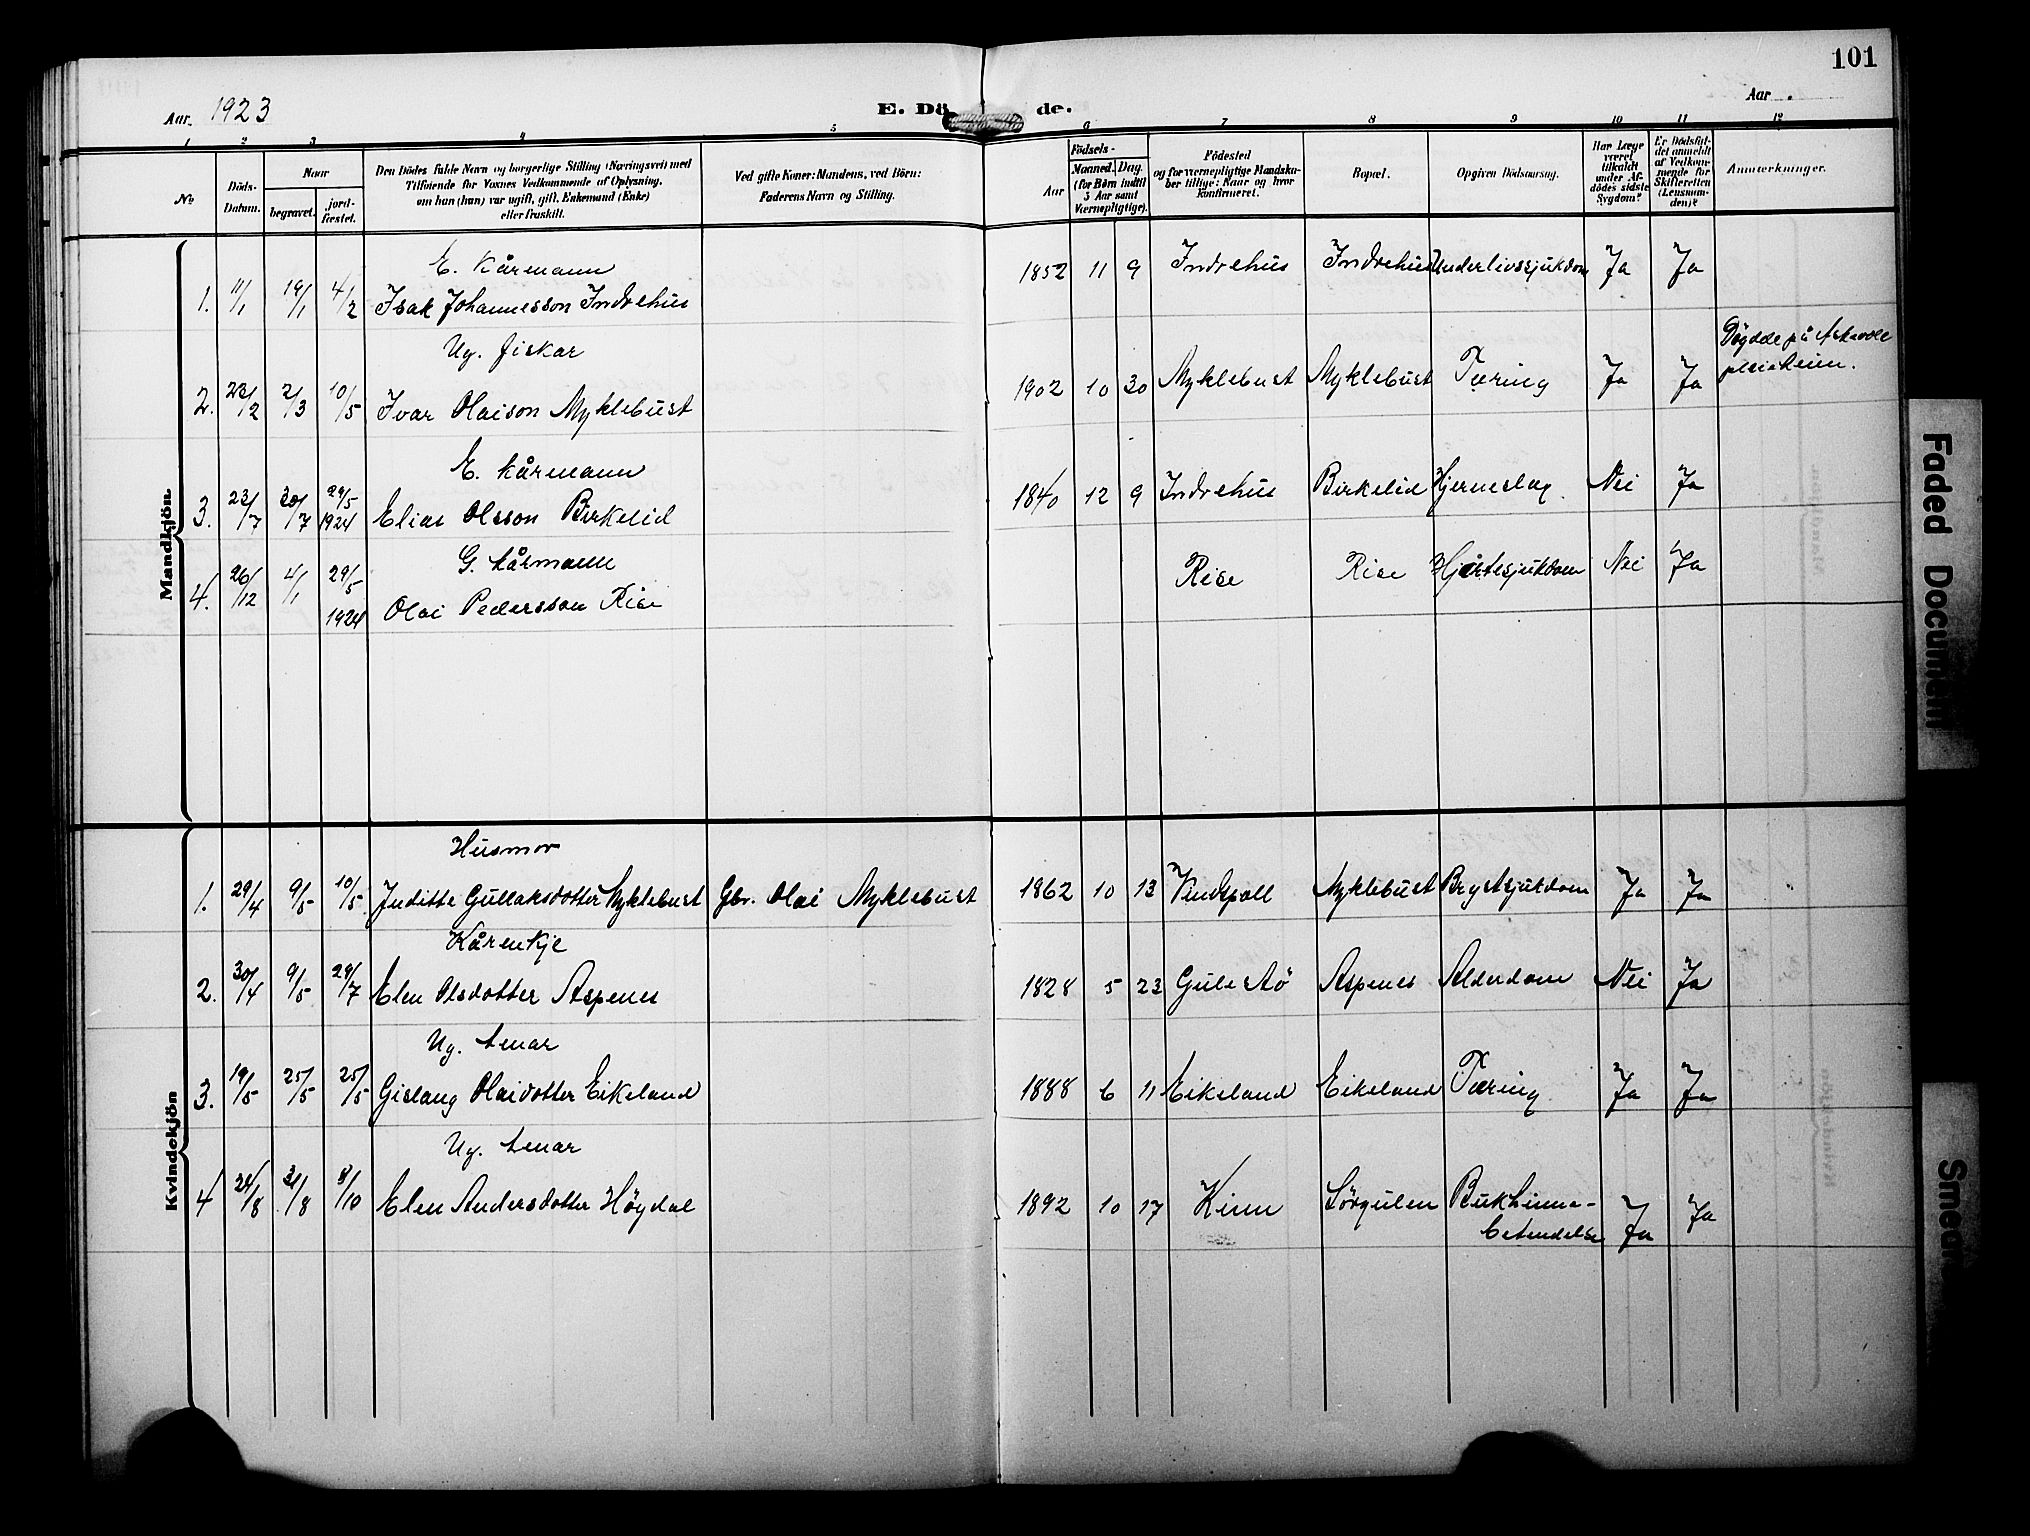 101
Aar. 1923
E. Dö de.
Aar .
1 2 3 4 5 6 7 8 9 10 11 12
No
Döds-
Datum.
Naar
begravet.
jord-
fæstet.
Den Dödes fulde Navn og borgerlige Stilling (Næringsvei) med
Tilföiende for Voxnes Vedkommende af Oplysning,
om han (hun) var ugift, gift, Enkemand (Enke)
eller fraskilt.
Ved gifte Koner: Mandens, ved Börn:
Faderens Navn og Stilling.
Födsels-
Aar
Maaned. Dag.
(for Börn indtil
5 Aar samt
Værnepligtige).
Födested
og for værnepligtige Mandska-
ber tillige: Naar og hvor
konfirmeret.
Bopæl.
Opgiven Dödsaarsag.
Har Læge
været
tilkaldt
under Af-
dödes sidste
Sygdom?
Er Dödsfal-
det anmeldt
af Vedkom-
mende for
Skifteretten
(Lensman-
den)?
Anmærkninger.
Mandkjön.
E. Kårmann
1. 11/1 19/1 4/2 Isak Johannesson Indrehus 1852 11 9 Indrehus Indrehus Underlivssjukdom Ja Ja
Ug. fiskar
2. 23/2 2/3 10/5 Ivar Olaison Myklebust 1902 10 30 Myklebust Myklebust Tæring Ja Ja
Döydde på
pleieheim.
E. Kårmann
3. 23/7 30/7 29/5 1924 Elias Olsson Birkelid 1840 12 9 Indrehus Birkelid Hjerneslag. Nei Ja
G. kårmann
4. 26/12 4/1 29/5 1924 Olai Pedersson Rise Rise Rise Hjartesjukdom Nei Ja
Kvindekjön
Husmor
1. 29/4 9/5 10/5 Juditte Gullaksdotter Myklebust Gbr. Olai Myklebust 1862 10 13 Vindspoll Myklebust Brystsjukdom Ja Ja
Kårenkje
2. 30/4 9/5 29/7 Elen Olsdotter Aspenes 1828 5 23 Gulestö Aspenes Alderdom Nei Ja
Ug. tenar
3. 19/5 25/5 25/5 Gislaug Olaidotter Eikeland 1888 6 11 Eikeland Eikeland Tæring Ja Ja
Ug. tenar
4 24/8 31/8 8/10 Elen Andersdotter Höydal 1892 10 17 Kinn Sörgulen Bukhinne-
betendelse Ja Ja
Faded Document